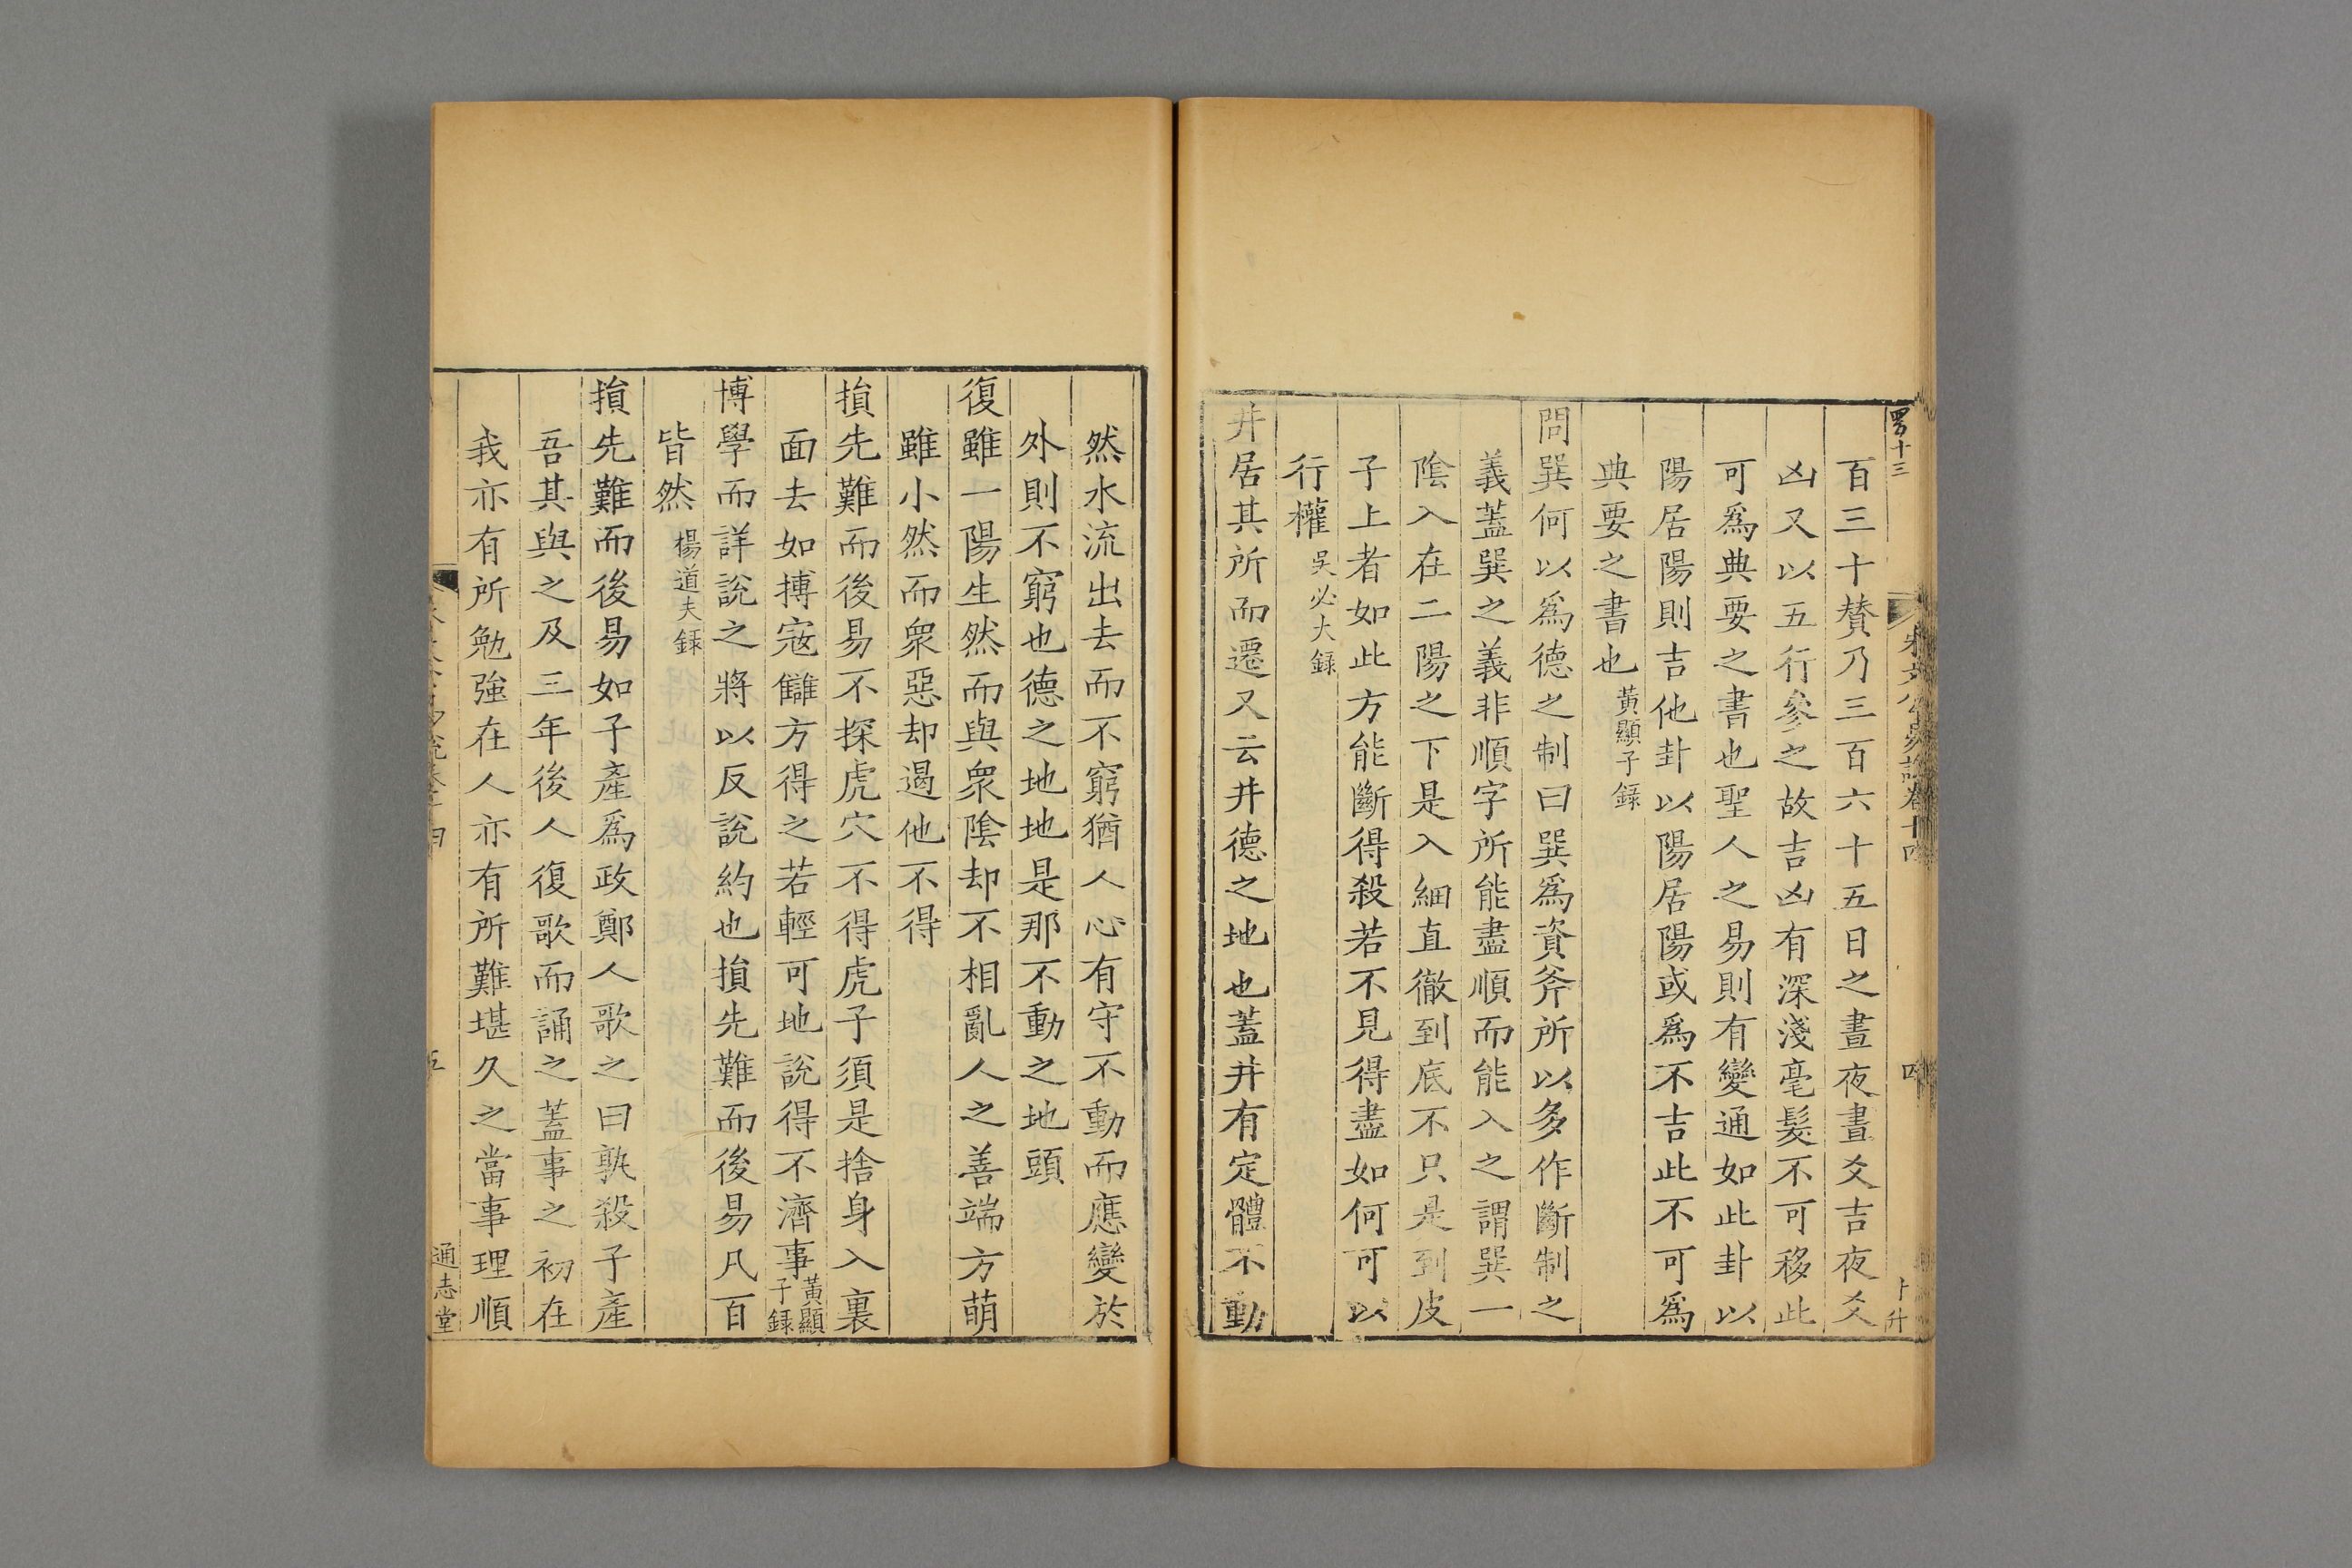 百三十贊乃三百六十五日之晝夜晝爻吉夜爻
凶又以五行參之故吉凶有深淺毫髮不可移此
可爲典要之書也聖人之易則有變通如此卦以
陽居陽則吉他卦以陽居陽或爲不吉此不可爲
典要之書也黃顯子録
問巽何以爲德之制曰巽爲資斧所以多作斷制之
義蓋巽之義非順字所能盡順而能入之謂巽一
陰入在二陽之下是入細直徹到底不只是到皮
子上者如此方能斷得殺若不見得盡如何可以
行權吳必大録
井居其所而遷又云井德之地也蓋井有定體不動
然水流出去而不窮猶人心有守不動而應變於
外則不窮也德之地地是那不動之地頭
復雖一陽生然而與衆陰却不相亂人之善端方萌
雖小然而衆惡却遏他不得
損先難而後易不探虎穴不得虎子須是捨身入裏
面去如搏寇讎方得之若輕可地說得不濟事黃顯子録
博學而詳說之將以反說約也損先難而後易凡百
皆然楊道夫録
損先難而後易如子產爲政鄭人歌之曰孰殺子產
吾其與之及三年後人復歌而誦之蓋事之初在
我亦有所勉強在人亦有所難堪久之當事理順
通志堂